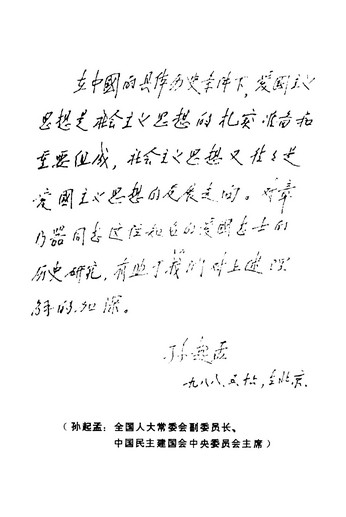 在中國的具体历史条件下，爱國主义
思想是社会主义思想的扎实准备和
重要组成，社会主义思想又往往是
爱國主义思想的发展走向。对章
乃器同志这位知名的爱國志士的
历史研究，有助于我们对上述理
解的加深。
孙起孟
一九八八、五、廿、在北京.
（孙起孟：全国人大常委会副委员长、
中国民主建国会中央委员会主席）